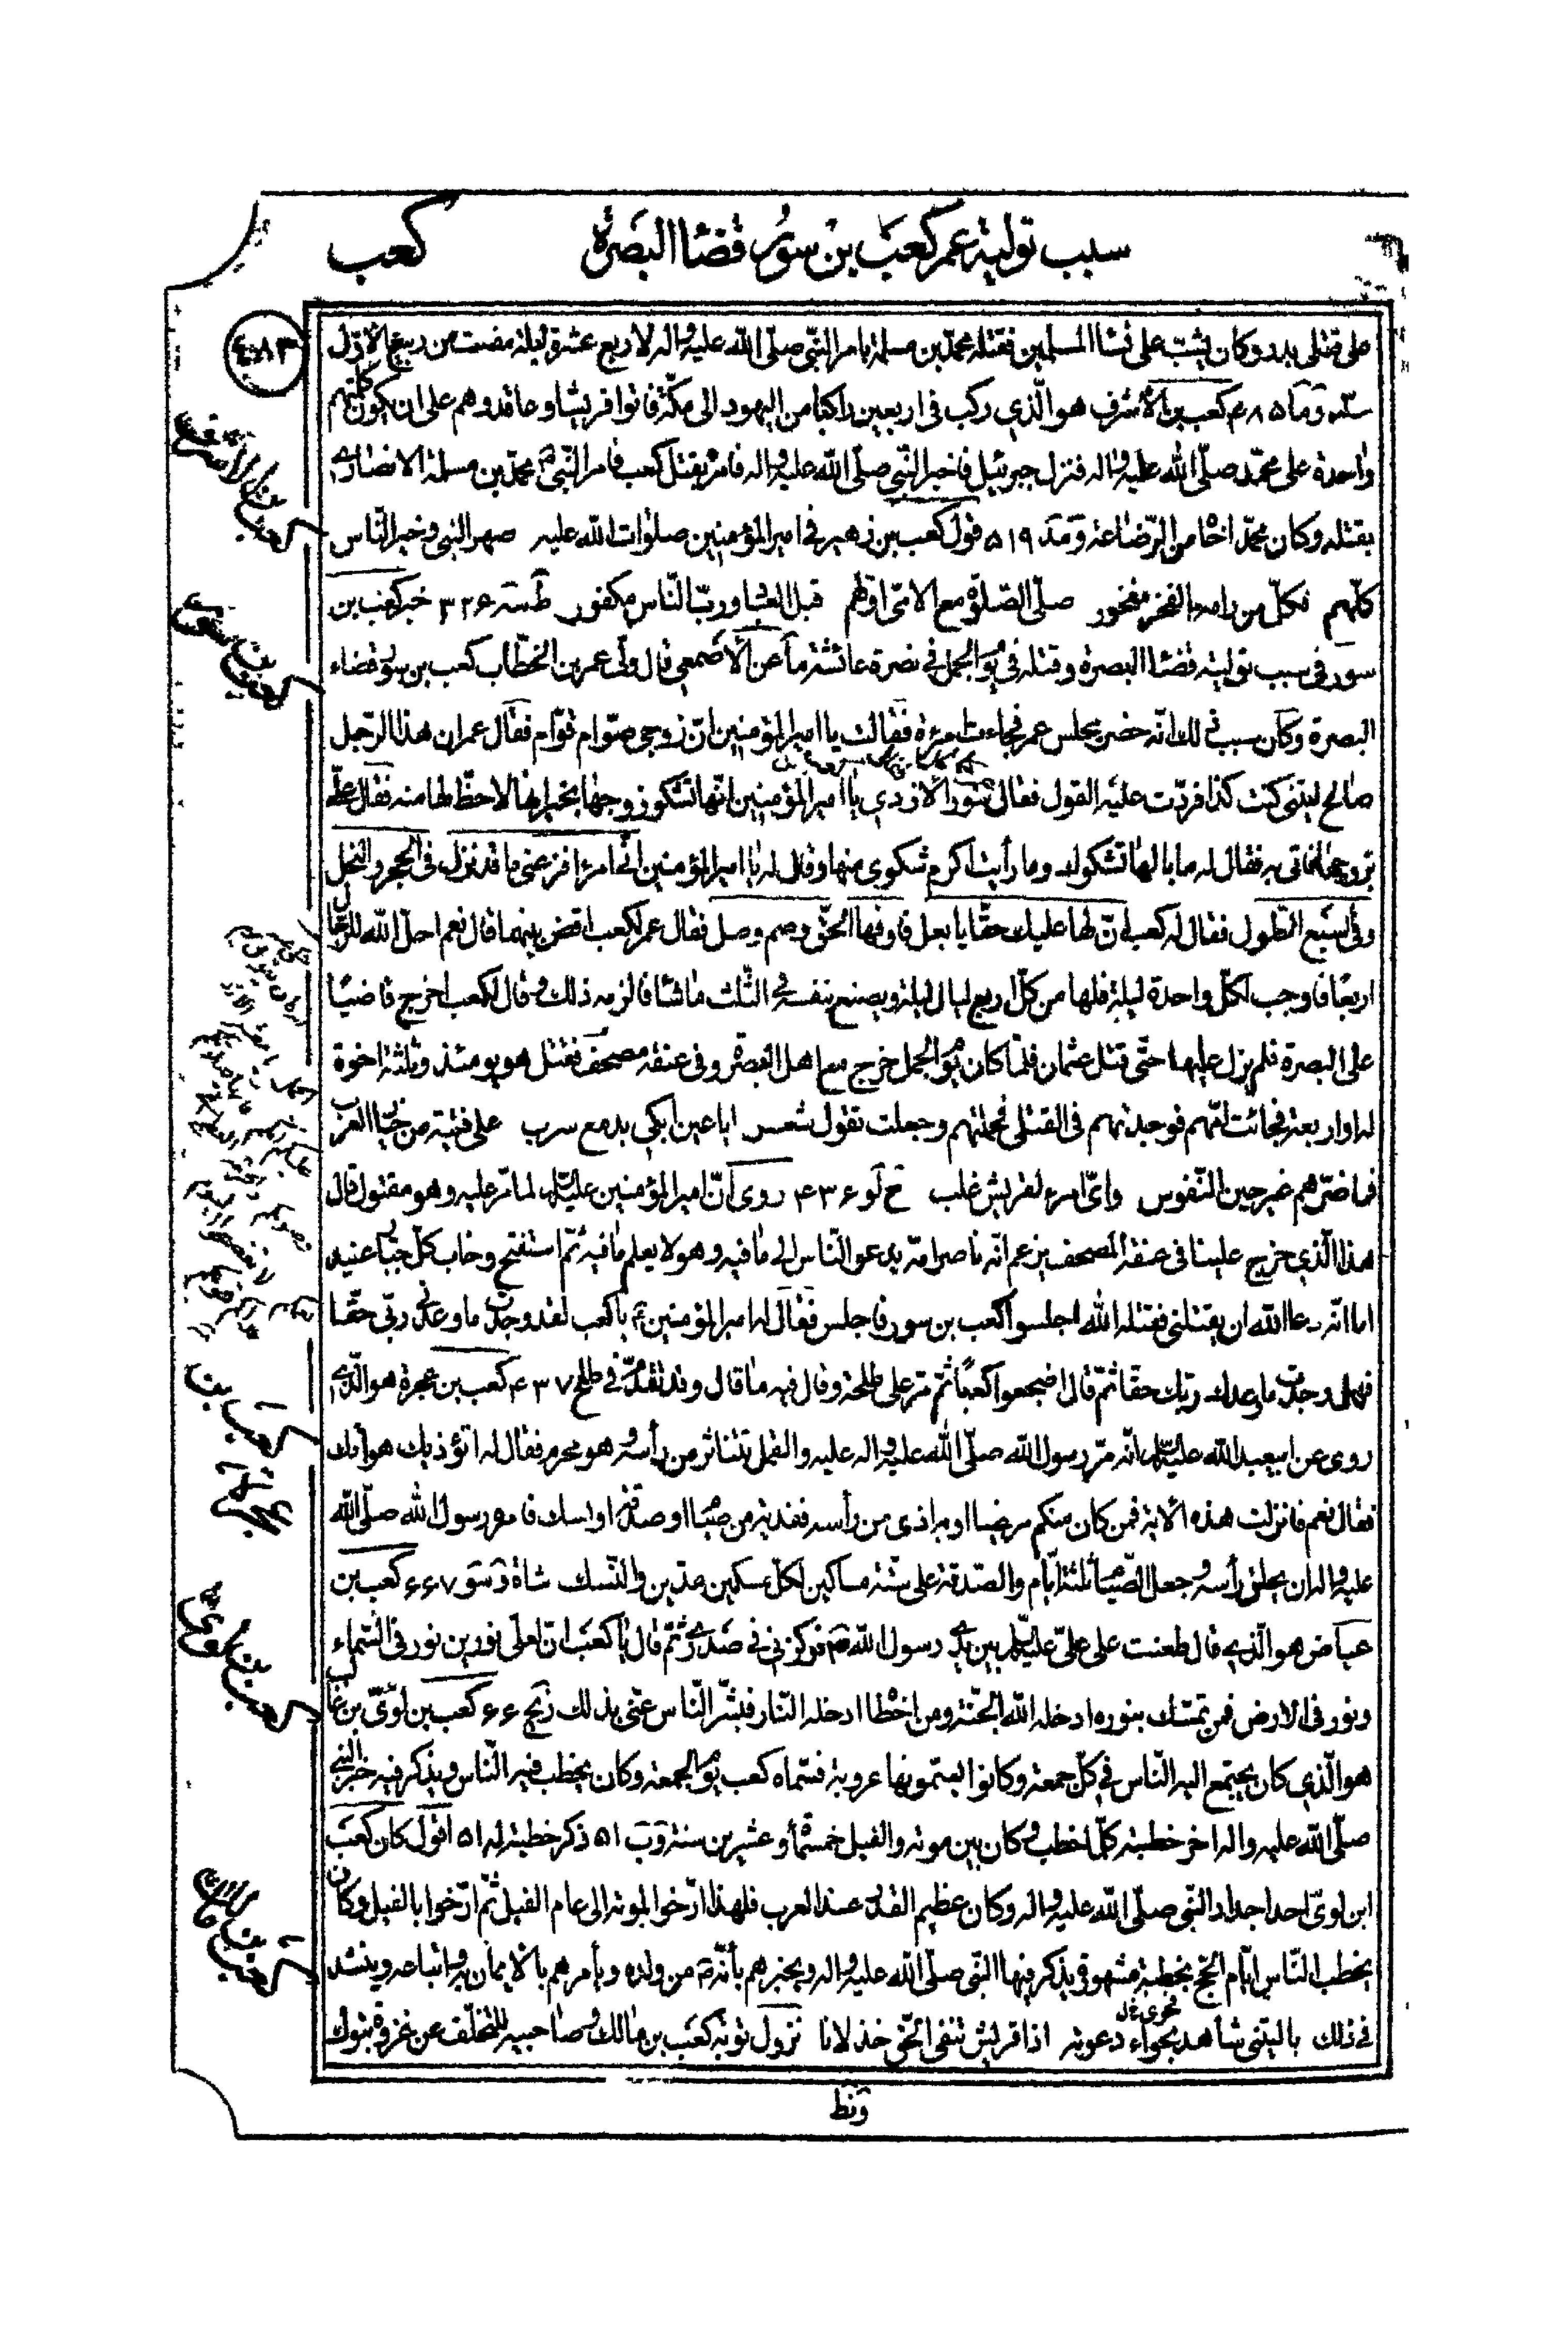 سبب تولية عمر كعب بن سور قضاء البصرة
كعب
٤٨٣
على قتلى بدر وكان يشبب على نساء المسلمين فقتله محمد بن مسلمة بامر النبي صلّى الله عليه واله لاربع عشرة ليلة مضت من ربيع الاوّل
كعب بن الأشرف هو الّذي ركب في اربعين راكبا من اليهود الى مكّة فاتوا قريشا وعاقدوهم على ان يكون كلمتهم
واحدة على محمّد صلّى الله عليه واله فنزل جبرئيل فاخبر النّبي صلّى الله عليه واله فامره بقتل كعب فامر النّبي محمّد بن مسلمة الانصاري
بقتله وكان محمّد اخاه من الرّضاعة ومد ٥١٩ قول كعب بن زهير في امير المؤمنين صلوات الله عليه صهر النبي وخير النّاس
كلّهم فكلّ من رامه بالفخر مفخور صلّى الصّلوة مع الامّيّ اوّلهم قبل العباد وربّ النّاس مكفور ٣٢٦ خبر كعب بن
سور في سبب توليته قضاء البصرة وقتله في يوم الجمل في نصرة عائشة ما عن الأصمعي قال ولّى عمر بن الخطّاب كعب بن سور قضاء
البصرة وكان سبب ذلك انّه حضر مجلس عمر فجاءت امرءة فقالت يا امير المؤمنين انّ زوجي صوّام قوّام فقال عمر ان هذا الرّجل
صالح ليتني كنت كذا فردّت عليه القول فقال سور الأزدي يا امير المؤمنين انّها تشكو زوجها بخبر انّها لا حظّ لها منه فقال علىّ
بزوجها فاتى به فقال له ما بالها تشكوك وما رأيت اكرم شكوى منها وقال له يا امير المؤمنين انّي امرء افزعني ما قد نزل في الحجر والنحل
وفي السّبع الطّول فقال له كعب انّ لها عليك حقّا يا بعل فاوفها الحقّ وصم وصل فقال عمر لكعب اقض بينهما قال نعم احلّ الله للرجال
اربعًا فاوجب لكلّ واحدة ليلة فلها من كلّ اربع ليال ليلة ويصنع بنفسه في الثّلث ما شاء فالزمه ذلك وقال لكعب اخرج قاضيًا
على البصرة فلم يزل عليها حتّى قتل عثمان فلمّا كان يوم الجمل خرج مع اهل البصرة وفي عنقه مصحف فقتل هو يومئذ وثلثة اخوة
له او اربعة فجائت امّهم فوجدتهم في القتلى فحملتهم وجعلت تقول شعر ايا عين ابكي بدمع سرب على فتية من خيار العرب
فما ضرّهم غير حين النّفوس وايّ امرء لقريش غلب ٤٣٦ روى انّ امير المؤمنين عليه السلام لمّا مرّ عليه وهو مقتول قال
هذا الّذي خرج علينا في عنقه المصحف يزعم انّه ناصر امّه يدعو النّاس الى ما فيه وهو لا يعلم ما فيه ثمّ استفتح وخاب كلّ جبّار عنيد
اما انّه دعا الله ان يقتلني فقتله الله اجلسوا كعب بن سور فاجلس فقال له امير المؤمنين يا كعب لقد وجدت ما وعدني ربّي حقّا
فهل وجدت ما وعدك ربّك حقّا ثمّ قال اضجعوا كعبًا ثمّ مرّ على طلحة وقال فيه ما قال وقد تقدّم في طلح ٤٣٧ كعب بن عجرة هو الّذي
روى عن ابيعبد الله عليه السلام انّه مرّ رسول الله صلّى الله عليه واله عليه والقمل تتناثر من رأسه وهو محرم فقال له اتؤذيك هوامّك
فقال نعم فانزلت هذه الآية فمن كان منكم مريضا او به اذى من رأسه ففدية من صيام او صدقة او نسك فامره رسول الله صلّى الله
عليه واله ان يحلق رأسه وجعل الصّيام ثلثة ايّام والصّدقة على ستّة مساكين لكلّ مسكين مدّين والنّسك شاة ٦٦٧ كعب بن
عياض هو الّذي قال طعنت على علىّ عليه السلام بين يدي رسول الله فوكزني في صدري ثمّ قال يا كعب انّ لعلي نورين نور في السّماء
ونور في الارض فمن تمسّك بنوره ادخله الله الجنّة ومن اخطأ ادخله النّار فبشّر النّاس عنّي بذلك ٦٦ كعب بن لؤيّ بن غالب
هو الّذي كان يجتمع اليه النّاس في كلّ جمعة وكانوا يسمّونها عروبة فسمّاه كعب يوم الجمعة وكان يخطب فيه النّاس ويذكر فيه خبر النبي
صلّى الله عليه واله اخر خطبته كلّما خطب وكان بين موته والفيل خمسمأة وعشرين سنة ٥١ ذكر خطبة له ٥١ اقول كان كعب
ابن لويّ احد اجداد النّبي صلّى الله عليه واله وكان عظيم القدر عند العرب فلهذا ارّخوا لموته الى عام الفيل ثمّ ارّخوا بالفيل وكان
يخطب النّاس ايّام الحجّ بخطبة مشهورة يذكر فيها النّبي صلّى الله عليه واله ويخبرهم بأنّه من ولده ويأمرهم بالايمان به واتباعه وينشد
في ذلك يا ليتني شاهد نجواء دعوته اذا قريش تنفى الحقّ خذلانا نزول توبة كعب بن مالك وصاحبيه للتخلّف عن غزوة تبوك
كعب بن الاشرف
كعب بن سور
كعب بن عجرة
كعب بن لؤي
كعب بن مالك